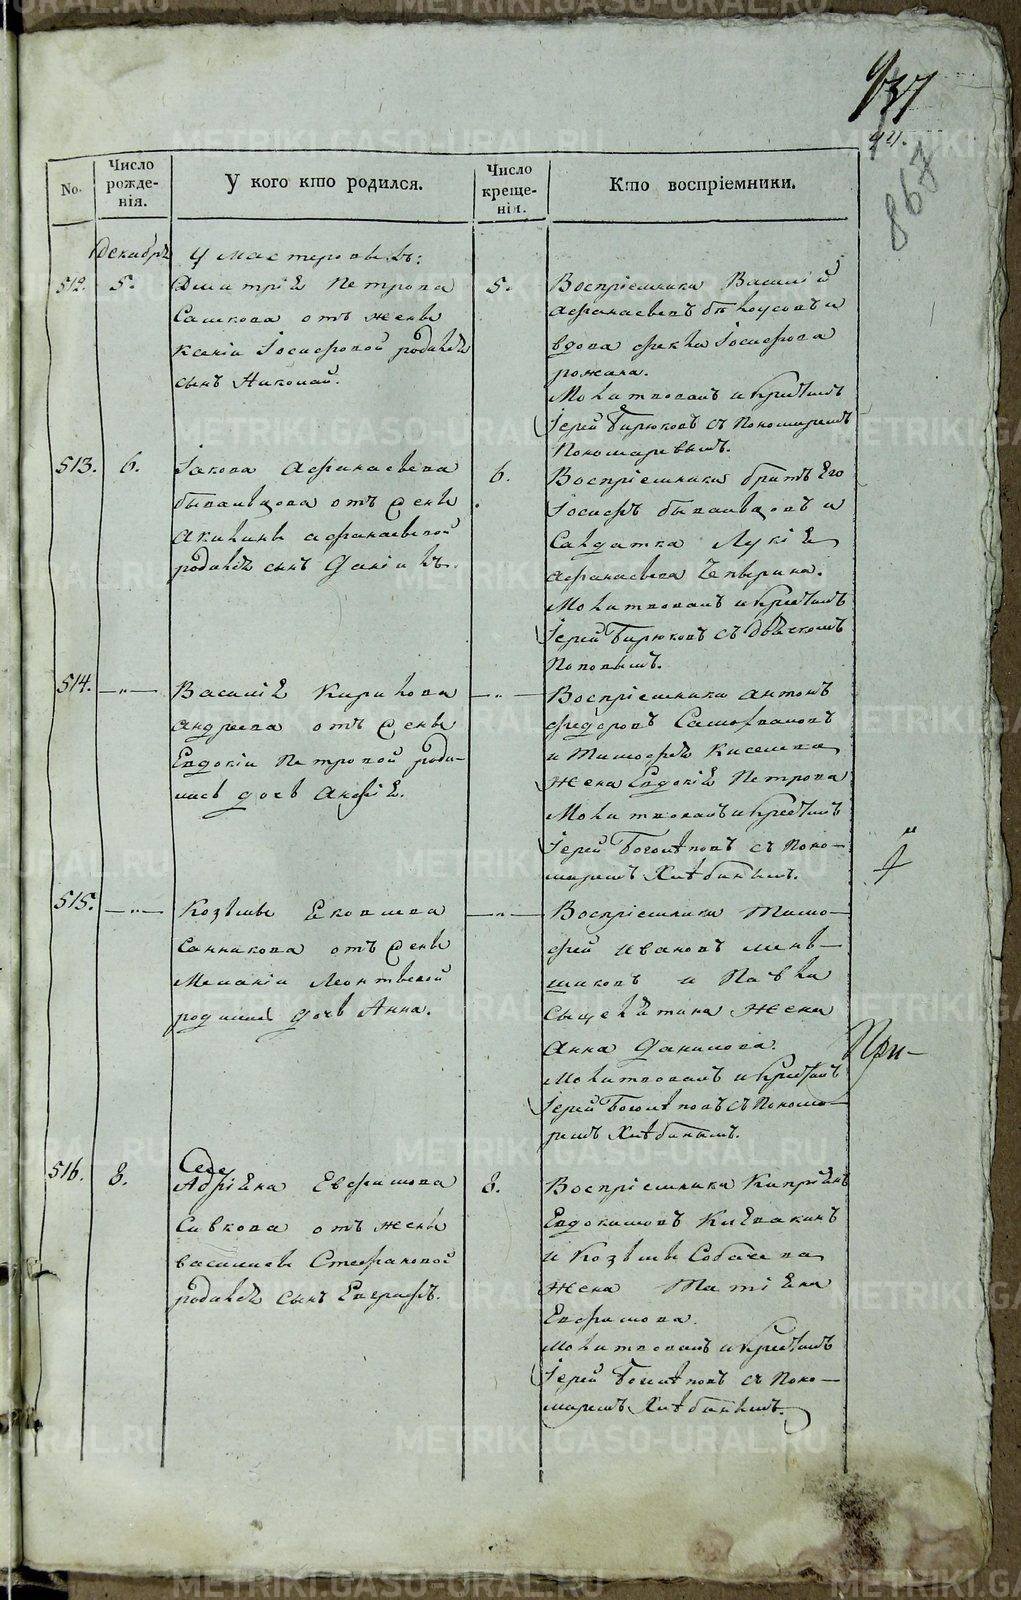 937
44.
867
No.
Число рожденія.
У кого кто родился.
Число крещенія.
Кто воспріемники.
Декабрь
У мастеровыхъ:
512.
5.
Димитрія Петрова
Сашкова отъ жены
Ксеніи Іосифовой родился
сынъ Николай.
5.
Воспріемники Василій
Афанасьевъ Бѣлоусовъ и
вдова Фекла Іосифова
рожана.
Молитвовалъ и крестилъ
Іерей Бирюковъ съ Пономаремъ
Пономаревымъ.
513.
6.
Іакова Афанасьева
бывальцова отъ жены
Акилины Афанасьевой
родился сынъ Даніилъ.
6.
Воспріемники братъ Его
Іосифъ бывальцовъ и
Салдатка Лукія
Афанасьева Чепырина.
Молитвовалъ и крестилъ
Іерей Бирюковъ съ дьячкомъ
Поповымъ.
514.
—"—
Василія Кирилова
Андреева отъ жены
Евдокіи Петровой роди-
лась дочь Анфія.
—"—
Воспріемники Антонъ
Федоровъ Самохваловъ
и Тимофея Киселева
жена Евдокія Петрова
Молитвовалъ и крестилъ
Іерей Боголѣповъ съ Поно-
маремъ Хлѣбинымъ.
515.
—"—
Козьмы Яковлева
Санникова отъ жены
Меланіи Леонтьевой
родилась дочь Анна.
—"—
Воспріемники Тимо-
фей Ивановъ мень-
шиковъ и Павла
Сыщелятина жена
Анна Данилова.
Молитвовалъ и крестилъ
Іерей Боголѣповъ съ Понома-
ремъ Хлѣбинымъ.
При-
516.
8.
Адріяна Евфимова
Савкова отъ жены
Василисы Стефановой
родился сынъ Евграфъ.
8.
Воспріемники Кипріянъ
Евдокимовъ Клевакинъ
и Козьмы Собачева
жена Татіяна
Евфимова.
Молитвовалъ и крестилъ
Іерей Боголѣповъ съ Поно-
маремъ Хлѣбинымъ.
METRIKI.GASO-URAL.RU